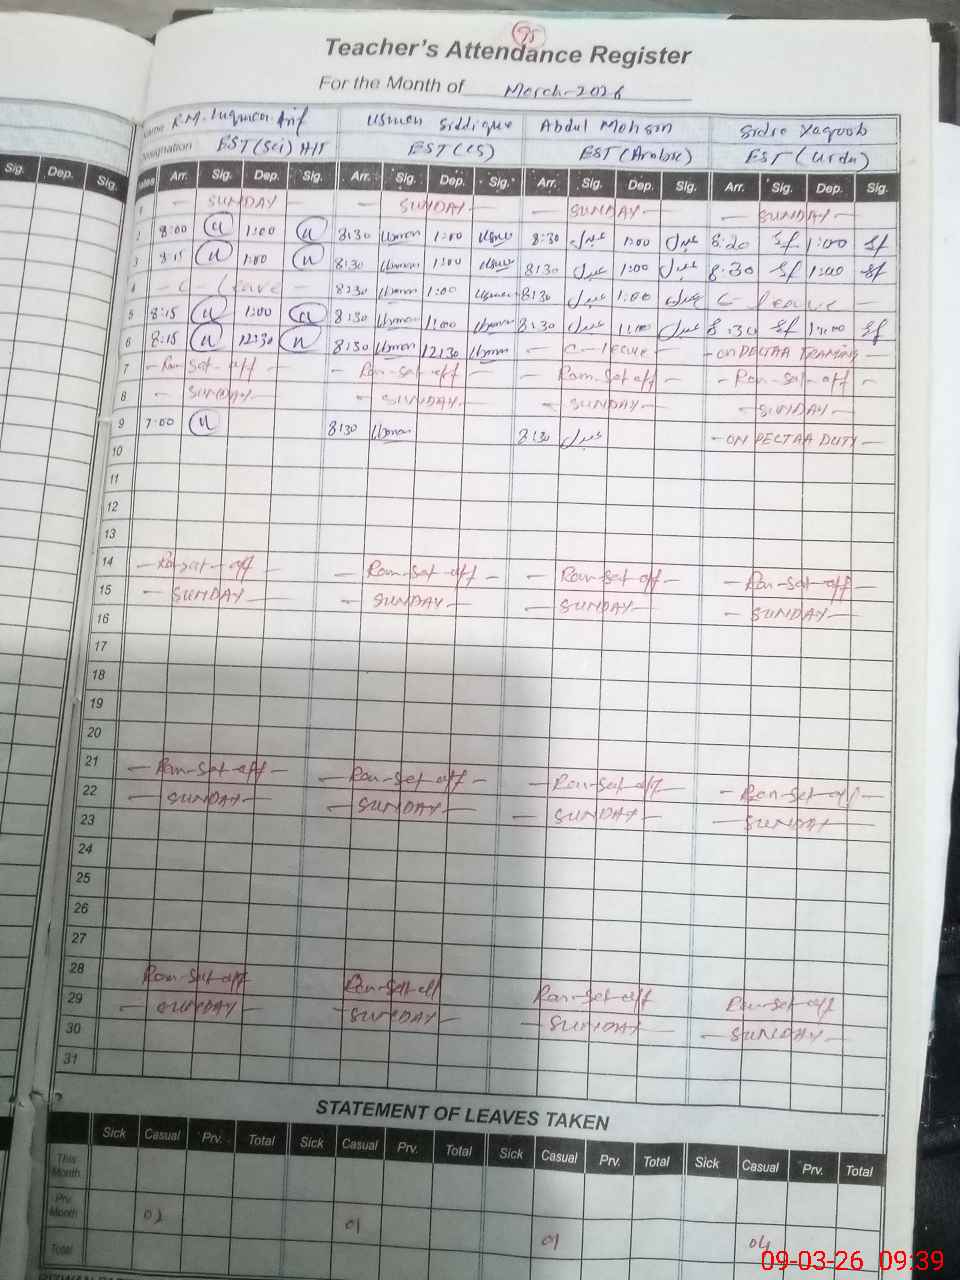 95
Teacher's Attendance Register
For the Month of March-2026
Name R.M. Luqman Arif Usman Siddique Abdul Mohsin Sidra Yaqoob
Designation EST (Sci) EST (CS) EST (Arabic) EST (Urdu)
Sig. Dep. Sig. Dates Arr. Sig. Dep. Sig. Arr. Sig. Dep. Sig. Arr. Sig. Dep. Sig. Arr. Sig. Dep. Sig.
1 — SUNDAY — — SUNDAY — — SUNDAY — — SUNDAY —
2 8:00 1:00 8:30 Usman 1:00 Usman 8:30 1:00 8:20 Sf 1:00 Sf
3 8:15 1:00 8:30 Usman 1:00 Usman 8:30 1:00 8:30 Sf 1:00 Sf
4 — C — leave — 8:30 Usman 1:00 Usman 8:30 1:00 C leave —
5 8:15 1:00 8:30 Usman 1:00 Usman 8:30 1:00 8:30 Sf 1:00 Sf
6 8:15 12:30 8:30 Usman 12:30 Usman — C-leave — — ON PECTAA TRAINING —
7 — Ram-Sat-off — — Ram-Sat-off — — Ram-Sat-off — — Ram-Sat-off —
8 — SUNDAY — — SUNDAY — — SUNDAY — — SUNDAY —
9 7:00 8:30 Usman 8:30 — ON PECTAA DUTY —
10
11
12
13
14 — Ram-Sat-off — — Ram-Sat-off — — Ram-Sat-off — — Ram-Sat-off —
15 — SUNDAY — — SUNDAY — — SUNDAY — — SUNDAY —
16
17
18
19
20
21 — Ram-Sat-off — — Ram-Sat-off — — Ram-Sat-off — — Ram-Sat-off —
22 — SUNDAY — — SUNDAY — — SUNDAY — — SUNDAY —
23
24
25
26
27
28 Ram-Sat-off Ram-Sat-off Ram-Sat-off Ram-Sat-off
29 — SUNDAY — — SUNDAY — — SUNDAY — — SUNDAY —
30
31
STATEMENT OF LEAVES TAKEN
Sick Casual Prv. Total Sick Casual Prv. Total Sick Casual Prv. Total Sick Casual Prv. Total
This Month
Prv. Month 02 01 01 04
Total
09-03-26 09:39